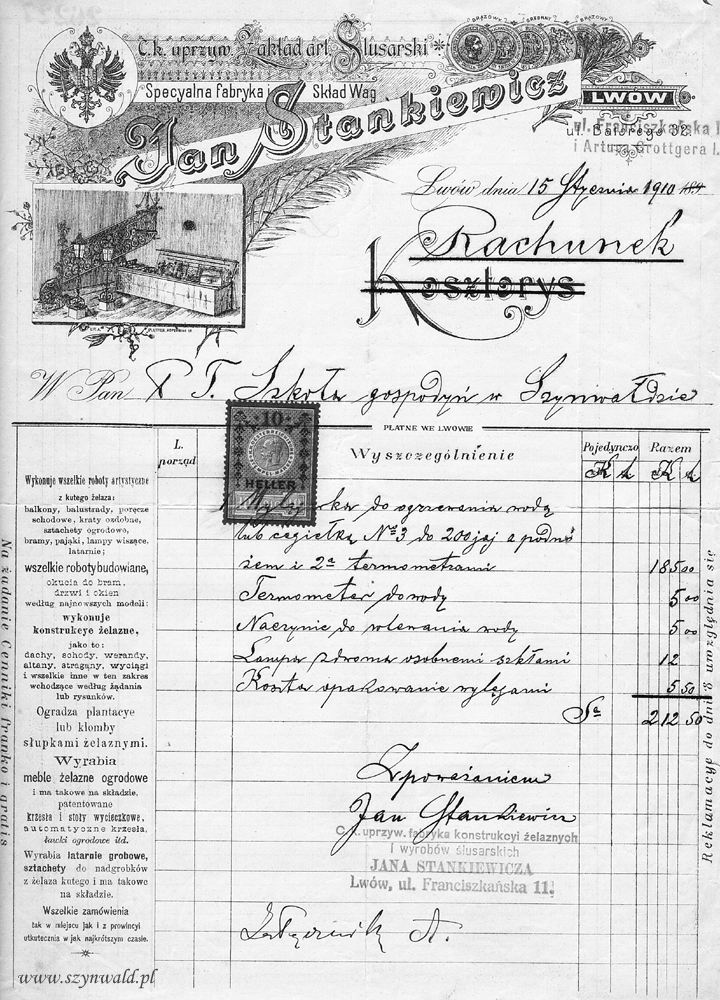 BRĄZOWY SREBRNY BRĄZOWY
C.k. uprzyw. Zakład art. Ślusarski
Specyalna Fabryka i Skład Wag
Jan Stankiewicz
LWÓW
ul. Batorego 32.
ul. Franciszkańska 1
i Artura Grottgera l.
Lwów dnia 15 Stycznia 1910 189
Rachunek
Kosztorys
W Pan P T. Szkoła gospodyń w Szynwałdzie
PŁATNE WE LWOWIE
L. porząd
Wyszczególnienie
Pojedynczo
Razem
K h
K h
10
HELLER
do ogrzewania wodą
lub cegiełką No 3 do 200 jaj a podnó
żem i 2a termometrami 185 00
Termometer do wody 5 00
Naczynie do wlewania wody 5 00
Lampa zdrowa osobnemi szkłami 12
Koszta opakowanie wylęgarni 5 50
Sa 212 50
Z poważaniem
Jan Stankiewicz
C. k. uprzyw. fabryka konstrukcyi żelaznych
i wyrobów ślusarskich
JANA STANKIEWICZA
Lwów, ul. Franciszkańska 11.
Wykonuje wszelkie roboty artystyczne
z kutego żelaza:
balkony, balustrady, poręcze
schodowe, kraty ozdobne,
sztachety ogrodowe,
bramy, pająki, lampy wiszące,
latarnie;
wszelkie roboty budowlane,
okucia do bram,
drzwi i okien
według najnowszych modeli:
wykonuje
konstrukcye żelazne,
jako to:
dachy, schody, werandy,
altany, stragany, wyciągi
i wszelkie inne w ten zakres
wchodzące według żądania
lub rysunków.
Ogradza plantacye
lub klomby
słupkami żelaznymi.
Wyrabia
meble żelazne ogrodowe
i ma takowe na składzie,
patentowane
krzesła i stoły wycieczkowe,
automatyczne krzesła,
ławki ogrodowe itd.
Wyrabia latarnie grobowe,
sztachety do nadgrobków
z żelaza kutego i ma takowe
na składzie.
Wszelkie zamówienia
tak w miejscu jak i z prowincyi
uskutecznia w jak najkrótszym czasie.
Na żądanie Cenniki franko i gratis
Reklamacye do dni 8 uwzględnia się
www.szynwald.pl